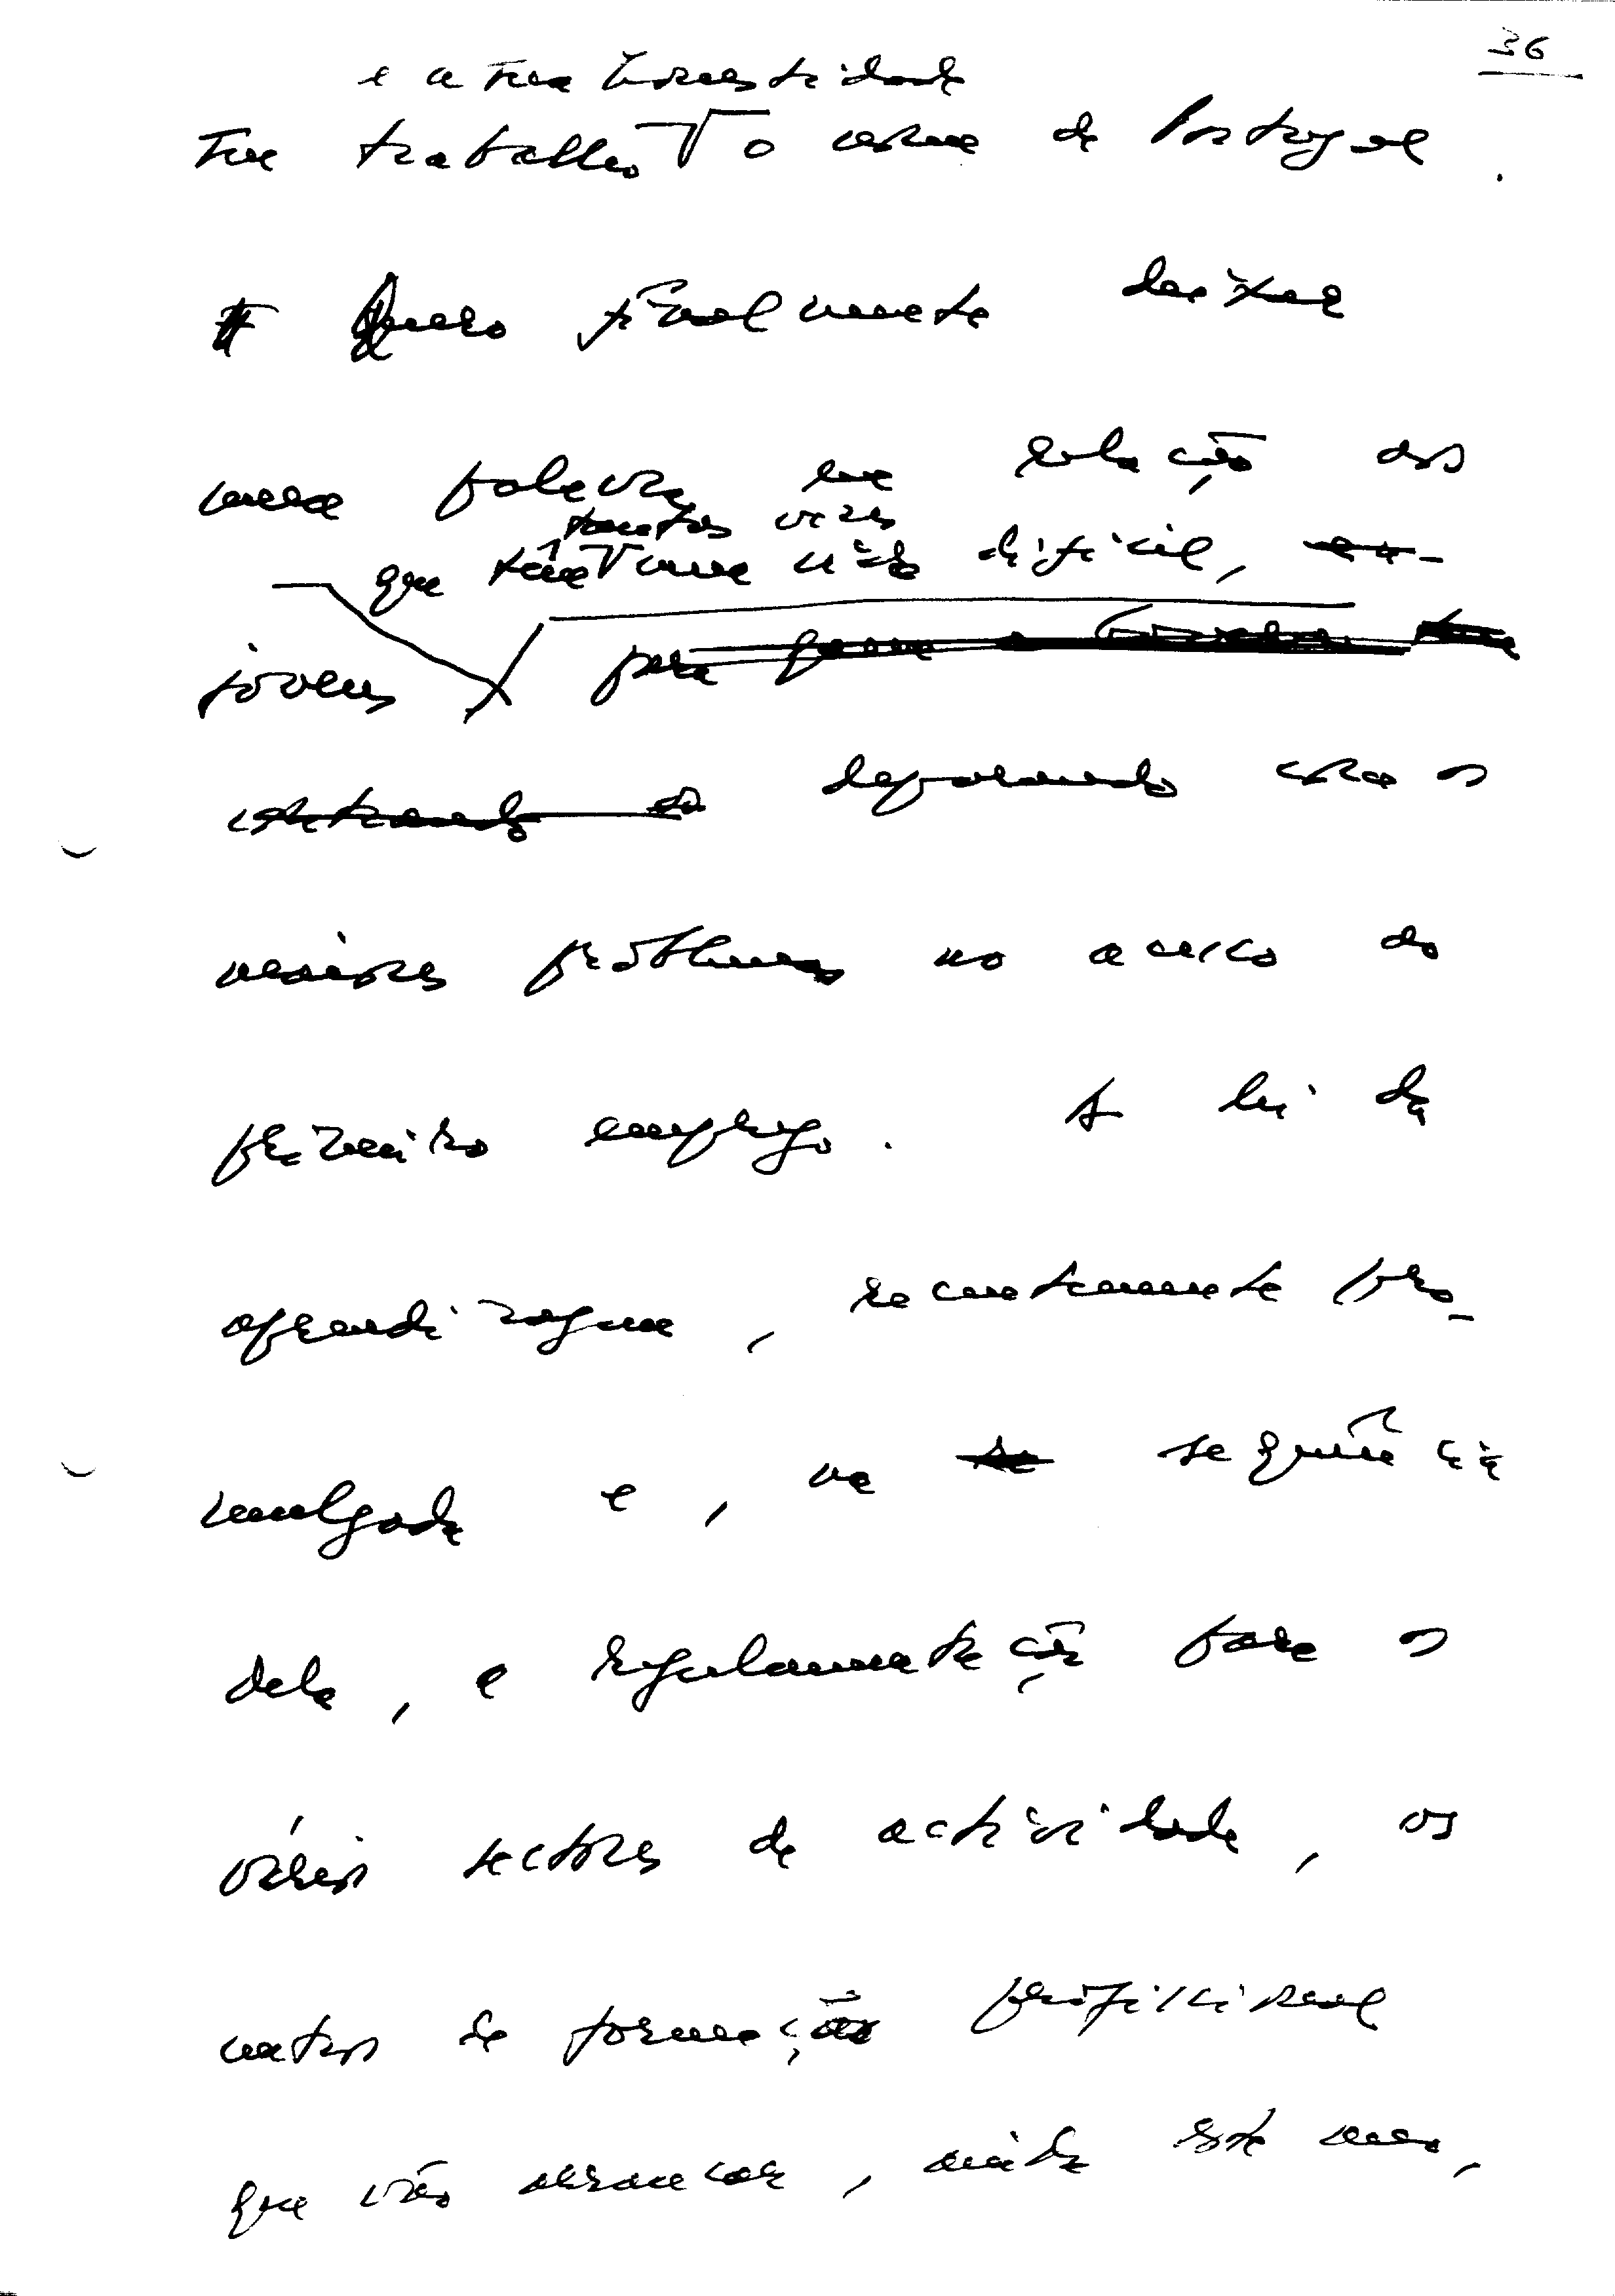 36
e a sua honestidade
seu trabalho o nome de Portugal.
Quero finalmente deixar
uma palavra em relação aos
tantas vezes
que têm uma vida difícil,
jovens
deparando com os
maiores problemas no acesso ao
primeiro emprego. A lei da
aprendizagem, recentemente pro-
mulgada e, na sequência
dela, a regulamentação para os
vários sectores de actividade, os
centros de formação profissional
que vão arrancar, ainda este ano,